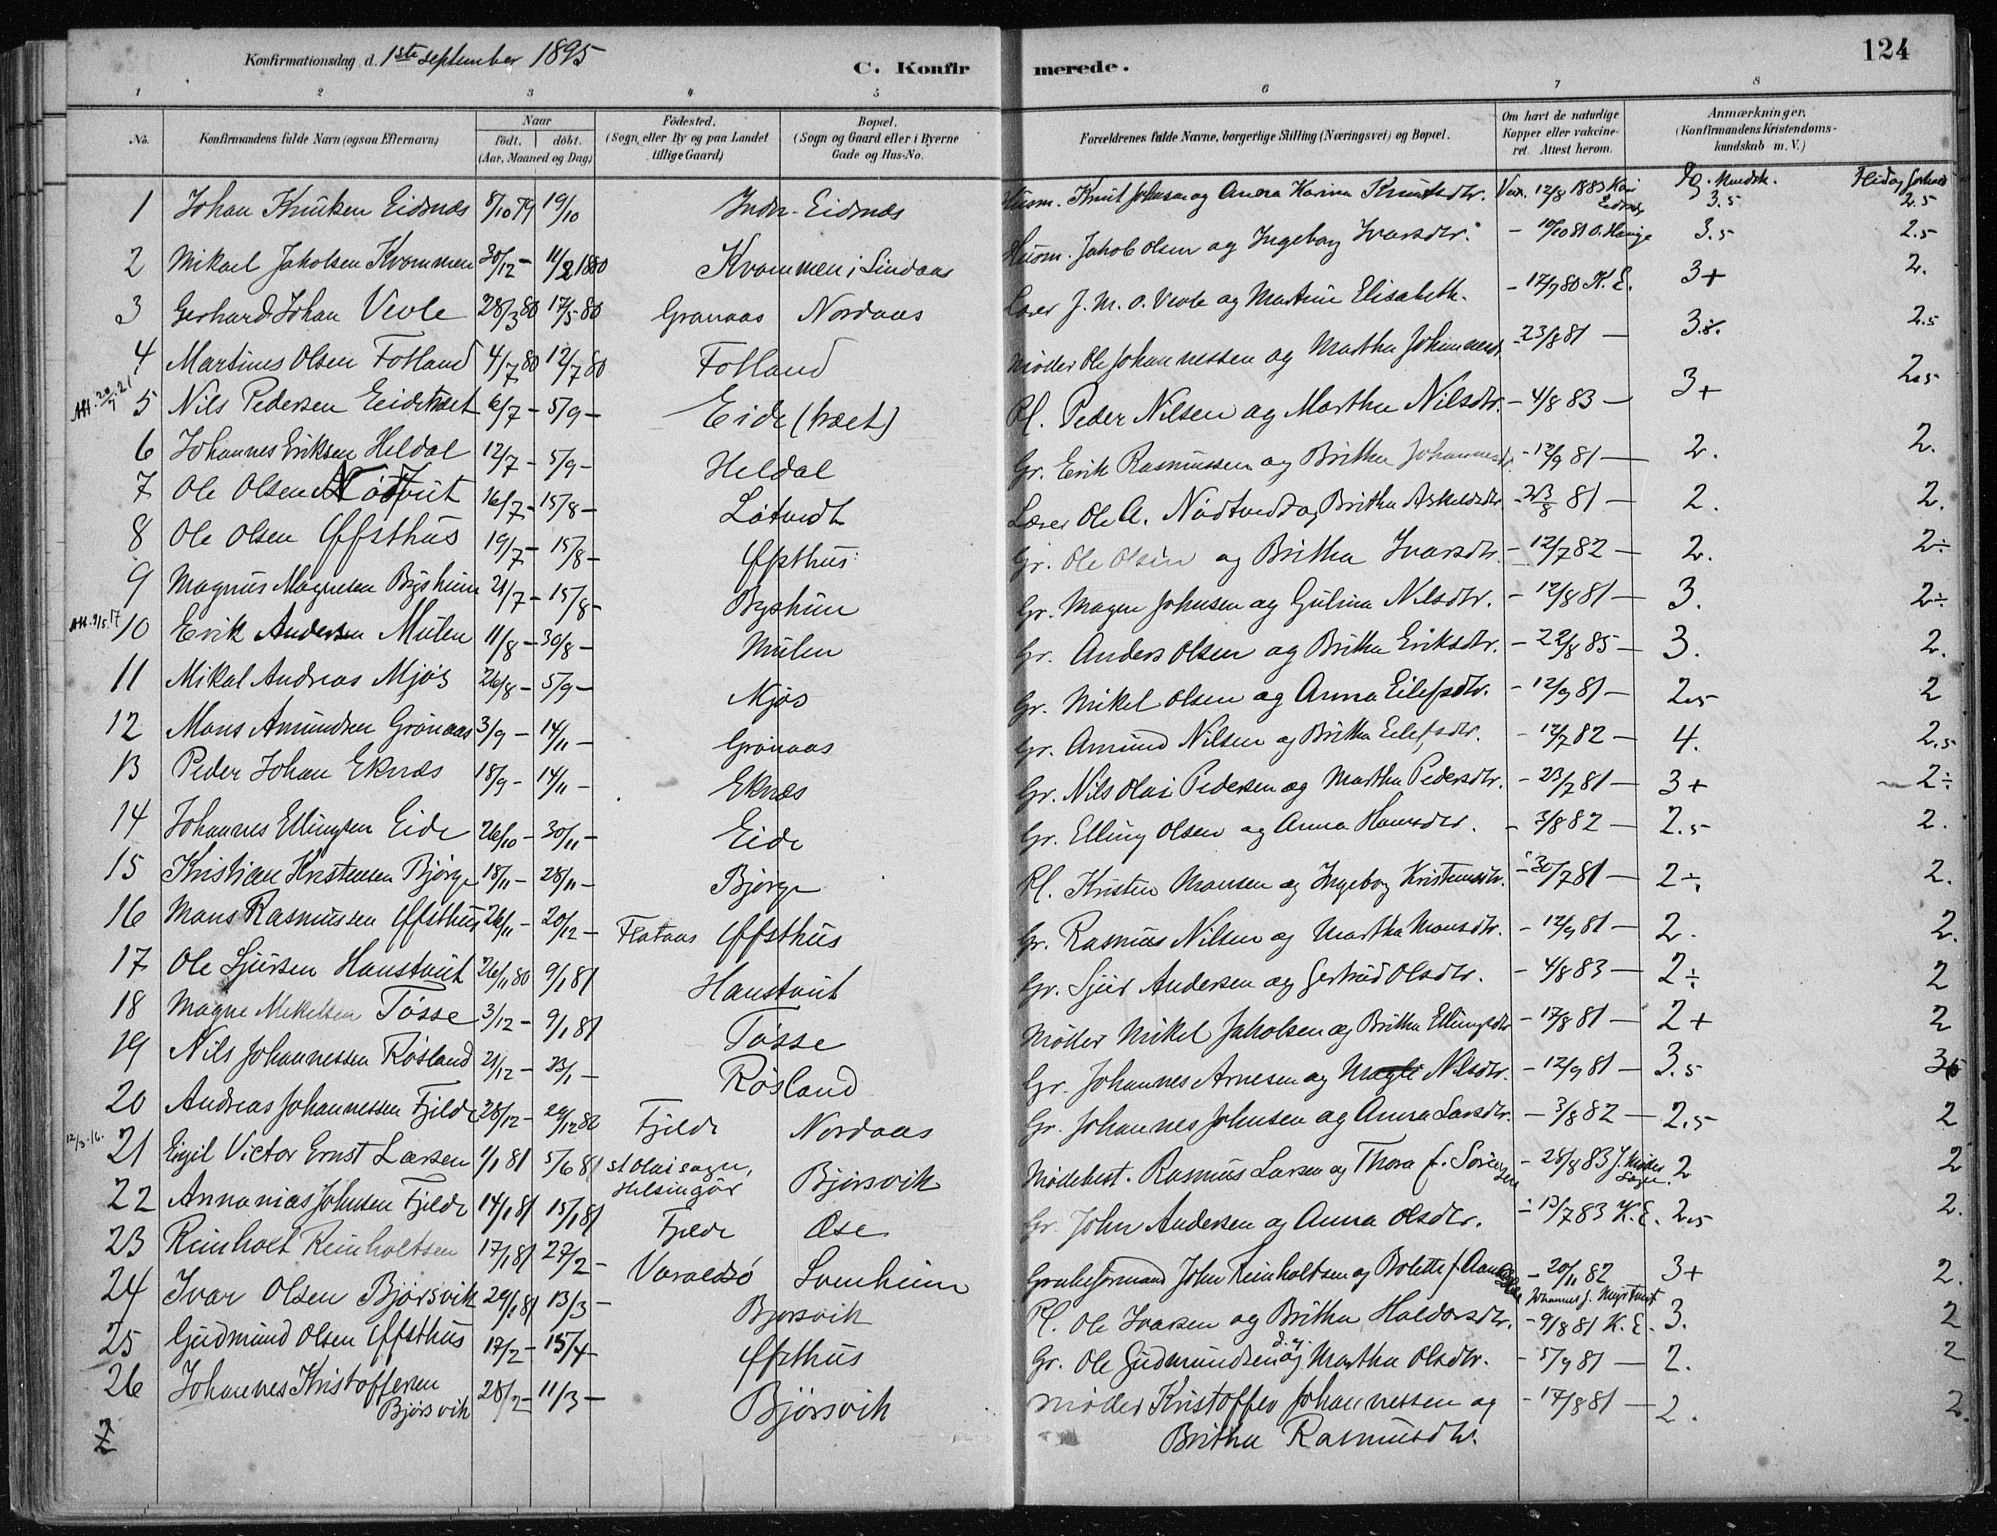 Konfirmationsdag d. 1ste september 1895
C. Konfir merede. 124
1 2 3 4 5 6 7 8
No. Konfirmandens fulde Navn (ogsaa Efternavn) Naar Födested. Bopæl. Forældrenes fulde Navne, borgerlige Stilling (Næringsvei) og Bopæl. Om havt de naturlige Anmærkninger,
födt. döbt. (Sogn eller By og paa Landet (Sogn og Gaard eller i Byerne Kopper eller vakcine- (Konfirmandens Kristendoms-
(Aar, Maaned og Dag) tillige Gaard) Gade og Hus-No. ret. Attest herom. kundskab m. V.)
1 Johan Knutsen Eidsnæs 8/10 79 19/10 Indr. Eidsnæs Husm. Knut Johnsen og Anna Karina Knutsdtr. Vax. 12/8 1883 3.5 2.5
2 Mikael Jakobsen Kvammen 30/12 - 11/2 1880 Kvammen i Lindaas Husm. Jakob Olsen og Ingeborg Ivarsdtr. - 10/10 81 O. Hauge 3.5 2.5
3 Gerhard Johan Veole 28/3 80 17/5 80 Grønaas Nordaas Lærer J. M. O. Veole og Martine Elisabeth. - 12/7 80 K. E. 3+ 2.
4 Martines Olsen Fotland 4/7 80 12/7 80 Fotland Møller Ole Johannessen og Martha Johannesd. - 23/8 81 - 3.5. 2.5
5 Nils Pedersen Eidetræet 6/7 - 5/9 - Eide (træet) Pl. Peder Nilsen og Martha Nilsdtr. - 4/8 83 - 3+ 2.5
6 Johannes Eriksen Heldal 12/7 - 5/9 - Heldal Gr. Erik Rasmussen og Britha Johannesdtr. - 12/9 81 - 2. 2.
7 Ole Olsen Nødtvet 16/7 - 15/8 - Løtvedt Lærer Ole A. Nødtvedt og Britha Askelsdtr. - 23/8 81 - 2. 2.
8 Ole Olsen Øffsthus 19/7 - 15/8 - Øfsthus Gr. Ole Olsen og Britha Ivarsdtr. - 12/7 82 - 2. 2÷
9 Magnus Magnesen Bysheim 21/7 - 15/8 - Bysheim Gr. Magne Johnsen og Gulina Nilsdtr. - 12/8 81 - 3. 2÷
10 Erik Andersen Mülen 11/8 - 30/8 - Mülen Gr. Anders Olsen og Britha Eriksdtr. - 22/8 85 - 3. 2.
11 Mikal Andreas Mjøs 26/8 - 5/9 - Mjøs Gr. Mikel Olsen og Anna Eilefsdtr. - 12/9 81 - 2.5 2
12 Mons Amundsen Grønaas 3/9 - 14/11 - Grønaas Gr. Amund Nilsen og Britha Eilefsdtr. - 12/7 82 - 4. 2.5
13 Peder Johan Eknæs 18/9 - 14/11 - Eknæs Gr. Nils Olai Pedersen og Martha Pedersdtr. - 23/7 81 - 3+ 2÷
14 Johannes Ellingsen Eide 26/10 - 30/11 - Eide Gr. Elling Olsen og Anna Hansdtr. - 3/8 82 - 2.5 2.
15 Kristian Kristensen Bjørge 18/11 - 28/11 - Bjørge Pl. Kristen Monsen og Ingeborg Kristensdtr. - 30/7 81 - 2÷. 2.
16 Mons Rasmussen Øffsthus 26/11 - 20/12 - Flataas Øffsthus Gr. Rasmus Nilsen og Martha Monsdtr. - 12/9 81 - 2. 2.
17 Ole Sjursen Hanstveit 26/11 80 9/1 81 Hanstveit Gr. Sjur Andersen og Gertrud Olsdtr. - 4/8 83 - 2÷ 2
18 Magne Mikelsen Tøsse 3/12 - 9/1 81 Tøsse Møller Mikel Jakobsen og Britha Ellingsdtr - 17/8 81 - 2+ 2
19 Nils Johannessen Røsland 21/12 - 23/1 - Røsland Gr. Johannes Arnesen og Magli Nilsdtr. - 12/9 81 - 3.5
20 Andreas Johannessen Fjelde 28/12 - 29/12 80 Fjelde Nordaas Gr. Johannes Johnsen og Anna Larsdtr. - 3/8 82 - 2.5 2
21 Eigil Victor Ernst Larsen 1/1 81 5/6 81 St Olai sogn, Helsingör Bjørsvik Mølebest. Rasmus Larsen og Thora f. Sørensen - 28/8 83 2 2
22 Annanias Johnsen Fjelde 14/1 81 15/1 81 Fjelde Øse Gr. John Andersen og Anna Olsdtr. - 13/7 83 K. E. 2.5 2.
23 Reinholt Reinholtsen 17/1 81 27/2 - Varaldsö Svenheim Grubeformand John Reinholtsen og Bolette f. - 20/11 82 3+ 2.
24 Ivar Olsen Bjørsvik 29/1 81 13/3 - Bjørsvik Pl. Ole Ivarsen og Britha Haldorsdtr. - 9/8 81 K. E. 3. 2
25 Gudmund Olsen Øffsthus 17/2 - 15/4 - Øfsthus Gr. Ole Gudmundsen d.y. og Martha Olsdtr. - 5/9 81 - 2. 2
26 Johannes Kristoffersen 28/2 - 11/3 - Bjørsvik Møller Kristoffer Johannessen og - 17/8 81 - 2. 2.
Bjørsvik Britha Rasmusdtr.